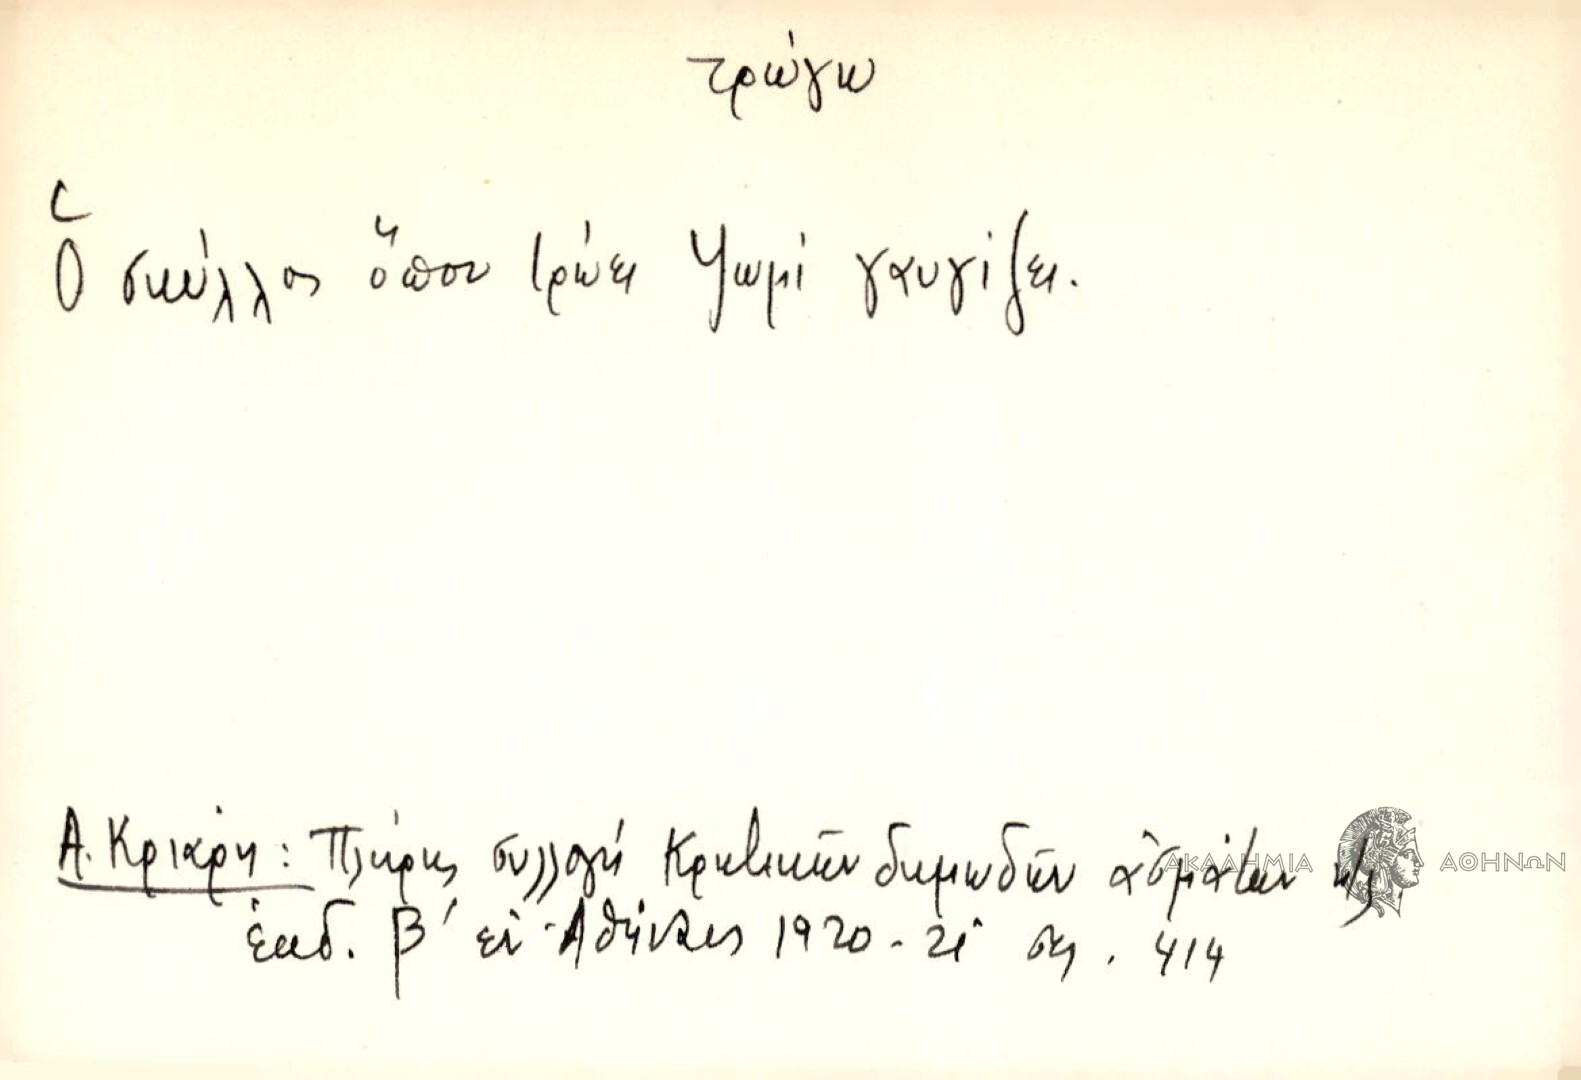 τρώγω
Ὁ σκύλλος ὅπου τρώει ψωμί γαυγίζει.
Α. Κριάρη: Πλήρης συλλογή Κρητικῶν δημωδῶν ᾀσμάτων κλ.
ἐκδ. β' ἐν Ἀθήναις 1920-21 σελ. 414
ΑΚΑΔΗΜΙΑ ΑΘΗΝΩΝ